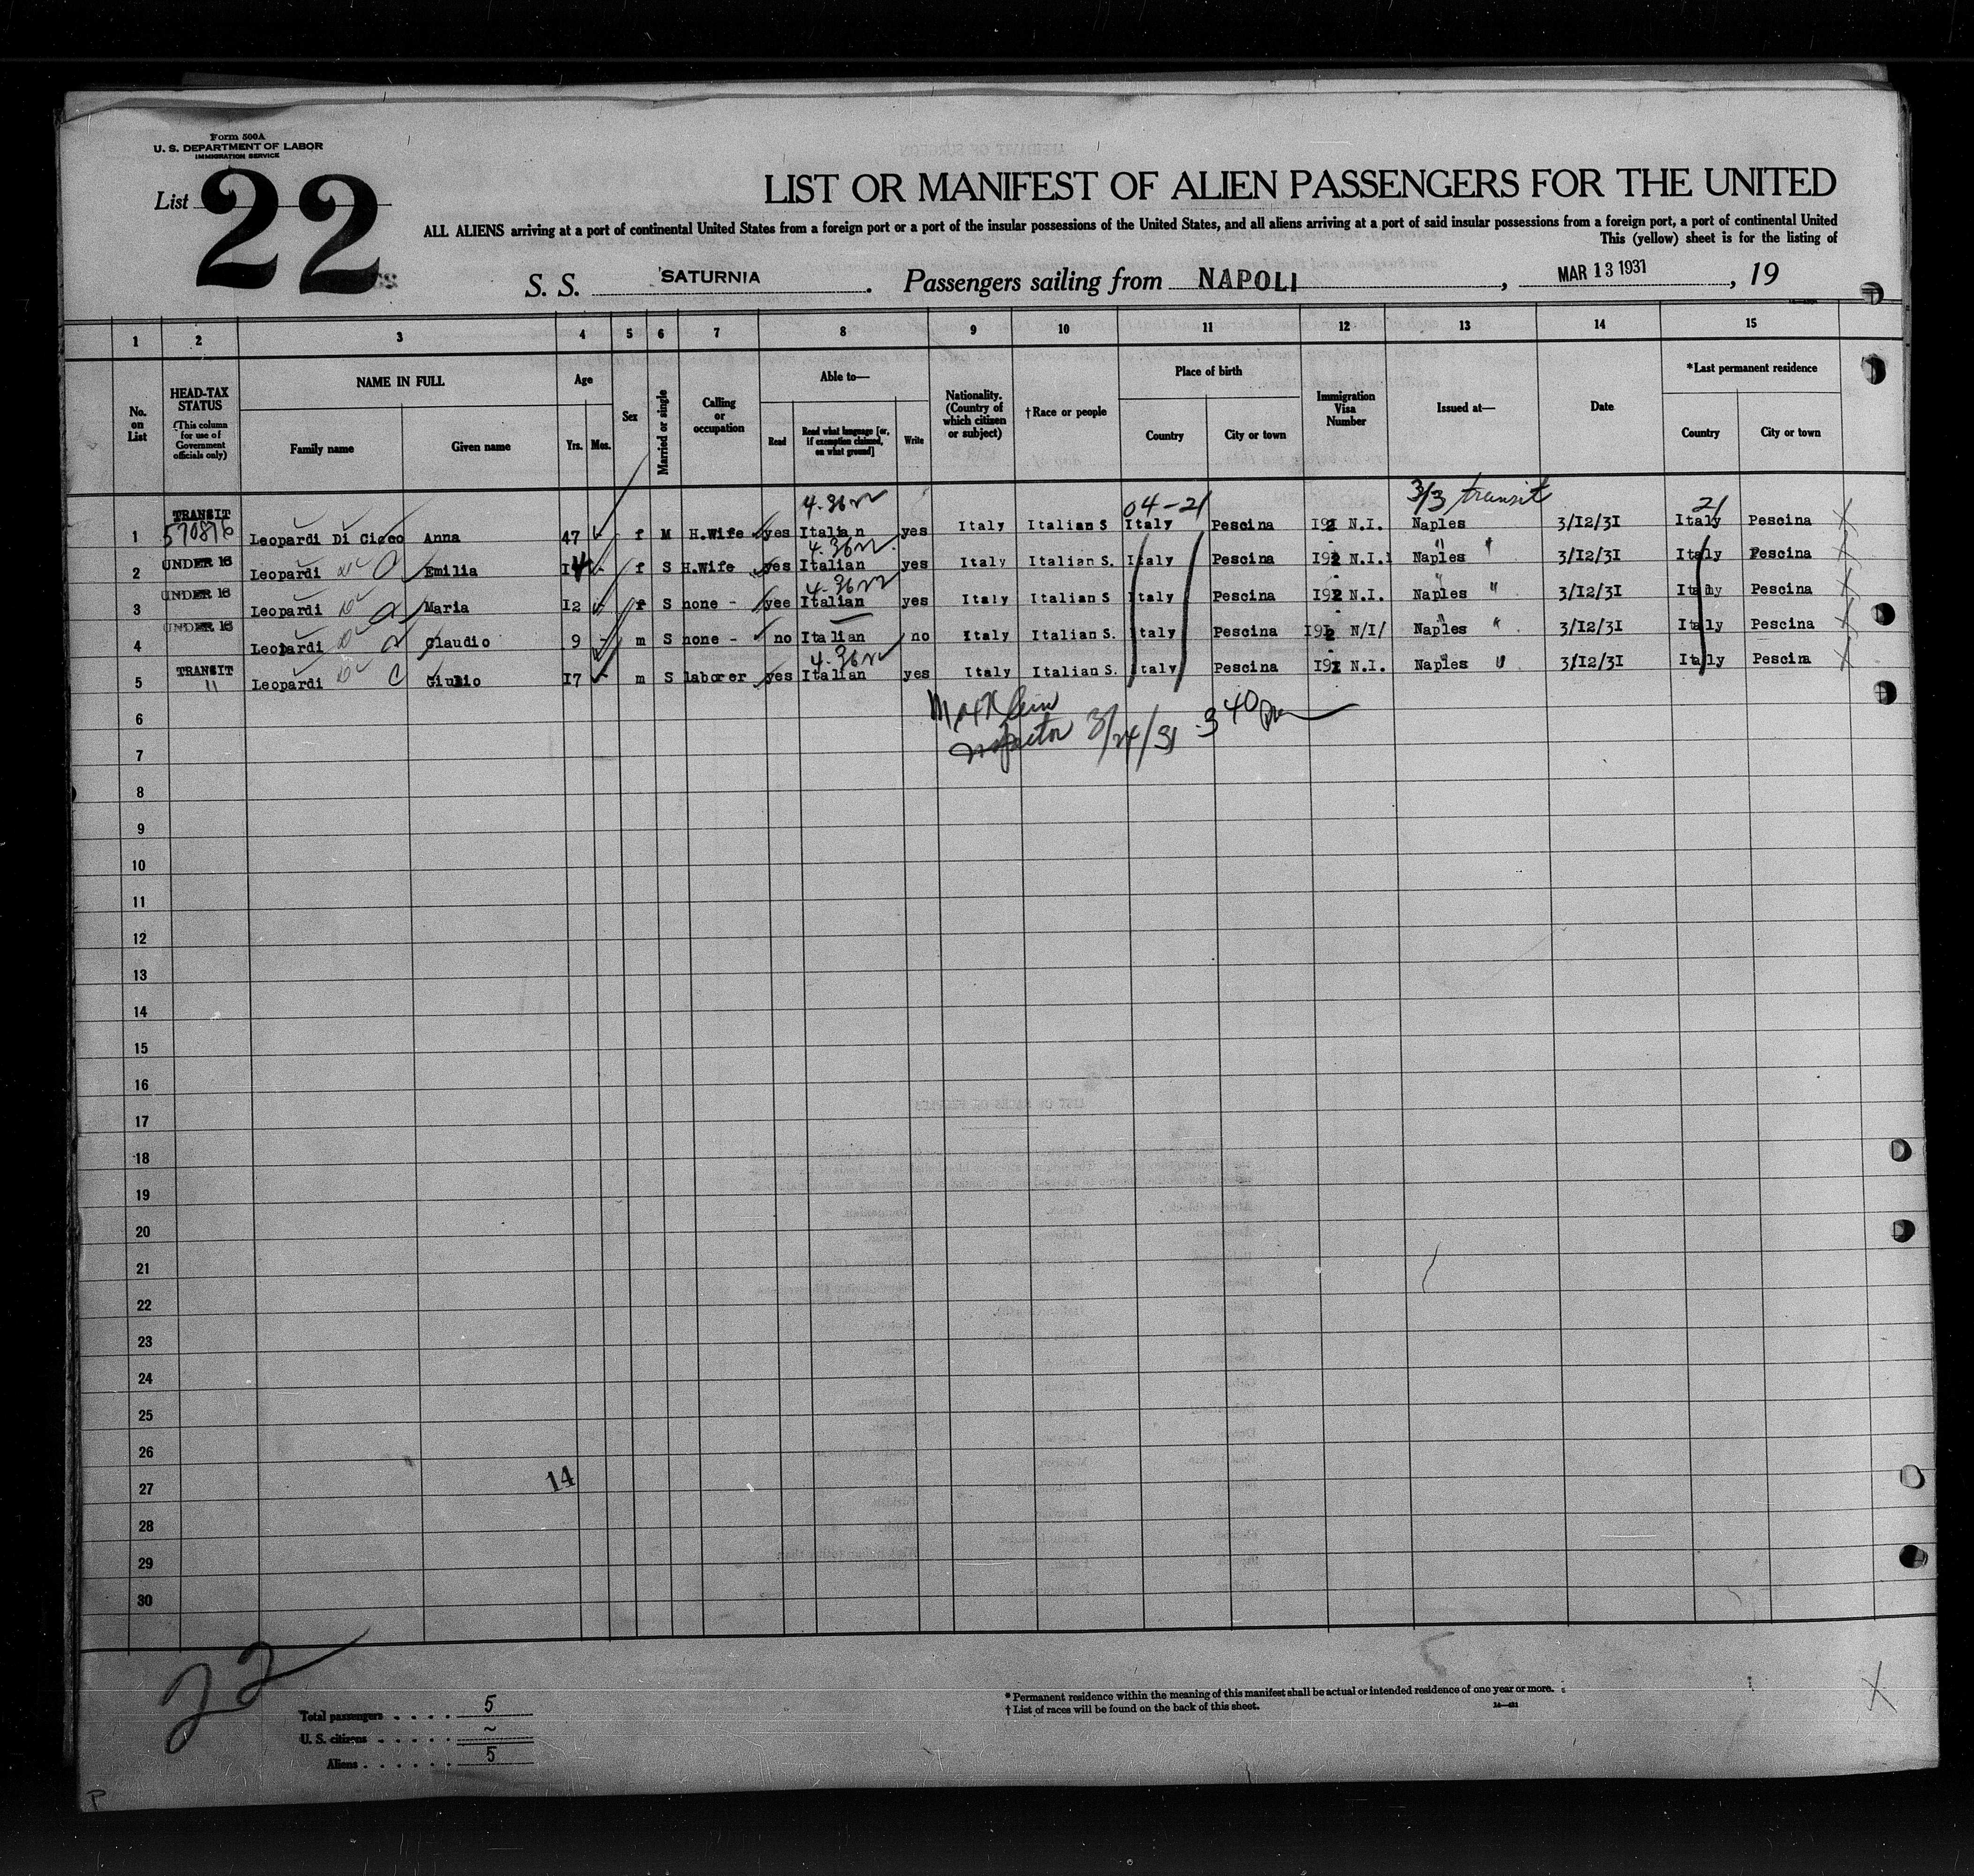 Form 500A
U. S. DEPARTMENT OF LABOR
IMMIGRATION SERVICE
List 22
LIST OR MANIFEST OF ALIEN PASSENGERS FOR THE UNITED
ALL ALIENS arriving at a port of continental United States from a foreign port or a port of the insular possessions of the United States, and all aliens arriving at a port of said insular possessions from a foreign port, a port of continental United
This (yellow) sheet is for the listing of
S. S. SATURNIA . Passengers sailing from NAPOLI , MAR 13 1931 , 19
1 2 3 4 5 6 7 8 9 10 11 12 13 14 15
No. on List
HEAD-TAX STATUS (This column for use of Government officials only)
NAME IN FULL
Family name
Given name
Age
Yrs.
Mos.
Sex
Married or single
Calling or occupation
Able to—
Read
Read what language [or, if exemption claimed, on what ground]
Write
Nationality. (Country of which citizen or subject)
†Race or people
Place of birth
Country
City or town
Immigration Visa Number
Issued at—
Date
*Last permanent residence
Country
City or town
TRANSIT 04-21 3/3 transit 21
1 570876 Leopardi Di Cicco Anna 47 f M H.Wife yes Italian yes Italy Italian S Italy Pescina I92 N.I. Naples 3/I2/3I Italy Pescina
2 UNDER 16 Leopardi Emilia I4 f S H.Wife yes Italian yes Italy Italian S. Italy Pescina I92 N.I. Naples " 3/I2/3I Italy Pescina
3 UNDER 16 Leopardi Maria I2 f S none - yee Italian yes Italy Italian S Italy Pescina I92 N.I. Naples " 3/I2/3I Italy Pescina
4 UNDER 16 Leopardi Claudio 9 - m S none - no Italian no Italy Italian S. Italy Pescina I92 N/I/ Naples " 3/I2/3I Italy Pescina
5 TRANSIT " Leopardi Giulio I7 m S laborer yes Italian yes Italy Italian S. Italy Pescina I92 N.I. Naples " 3/I2/3I Italy Pescina
6
Inspector 3/24/31 3 40 pm
7
8
9
10
11
12
13
14
15
16
17
18
19
20
21
22
23
24
25
26
27
14
28
29
30
22
Total passengers . . . . . 5
U. S. citizens . . . . . ~
Aliens . . . . . . 5
* Permanent residence within the meaning of this manifest shall be actual or intended residence of one year or more.
† List of races will be found on the back of this sheet.